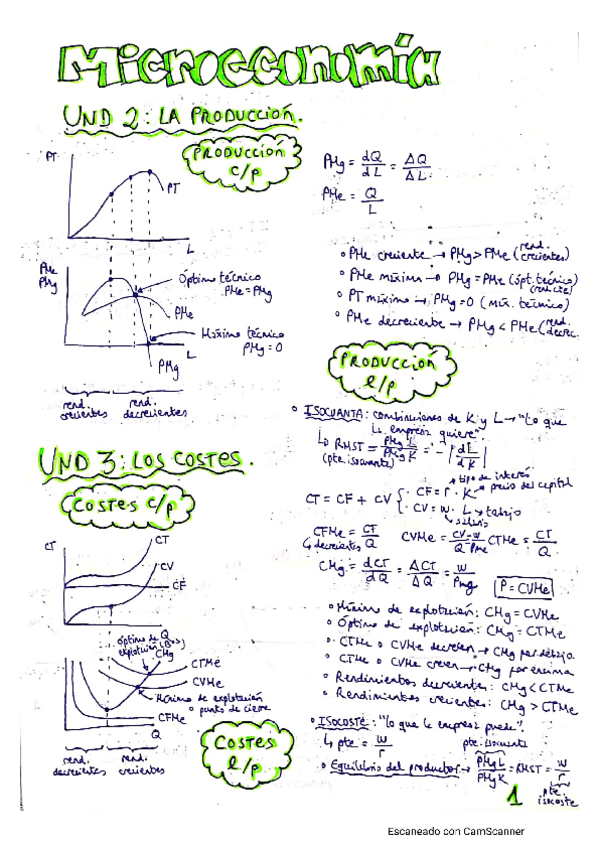 Microeconomía
UND 2: LA PRODUCCIÓN.
PRODUCCIÓN
c/p
PT
PT
L
PMg = dQ/dL = ΔQ/ΔL
PMe = Q/L
PMe
PMg
Óptimo técnico
PMe = PMg
PMe
Máximo técnico
PMg = 0
L
PMg
rend.
crecientes
rend.
decrecientes
• PMe creciente → PMg > PMe (rend. crecientes)
• PMe máxima → PMg = PMe (ópt. técnico)
• PT máximo → PMg = 0 (máx. técnico)
• PMe decreciente → PMg < PMe (rend. decrec.
PRODUCCIÓN
l/p
• ISOCUANTA: combinaciones de K y L → "Lo que
la empresa quiere".
↳ RMST = PMg L/PMg K = - |dL/dK|
(pte. isocuanta)
UND 3: LOS COSTES.
COSTES c/p
tipo de interés
CT = CF + CV { · CF = r · K → precio del capital
· CV = w · L → trabajo
↳ salario
CFMe = CT/Q
↳ decrecientes
CVMe = CV/Q = w/PMe
CTMe = CT/Q
CMg = dCT/dQ = ΔCT/ΔQ = w/PMg
P = CVMe
CT
CT
CV
CF
Q
• Mínimo de explotación: CMg = CVMe
• Óptimo de explotación: CMg = CTMe
• CTMe o CVMe decrecen → CMg por debajo.
• CTMe o CVMe crecen → CMg por encima
• Rendimientos decrecientes: CMg < CTMe
• Rendimientos crecientes: CMg > CTMe
óptimo de
explotación
CMg
CTMe
CVMe
Mínimo de explotación
o punto de cierre
CFMe
Q
rend.
decrecientes
rend.
crecientes
COSTES
l/p
• ISOCOSTE: "lo que la empresa puede".
↳ pte = w/r
pte. isocuanta
• Equilibrio del productor → PMg L/PMg K = RMST = w/r
pte.
isocoste
1
Escaneado con CamScanner